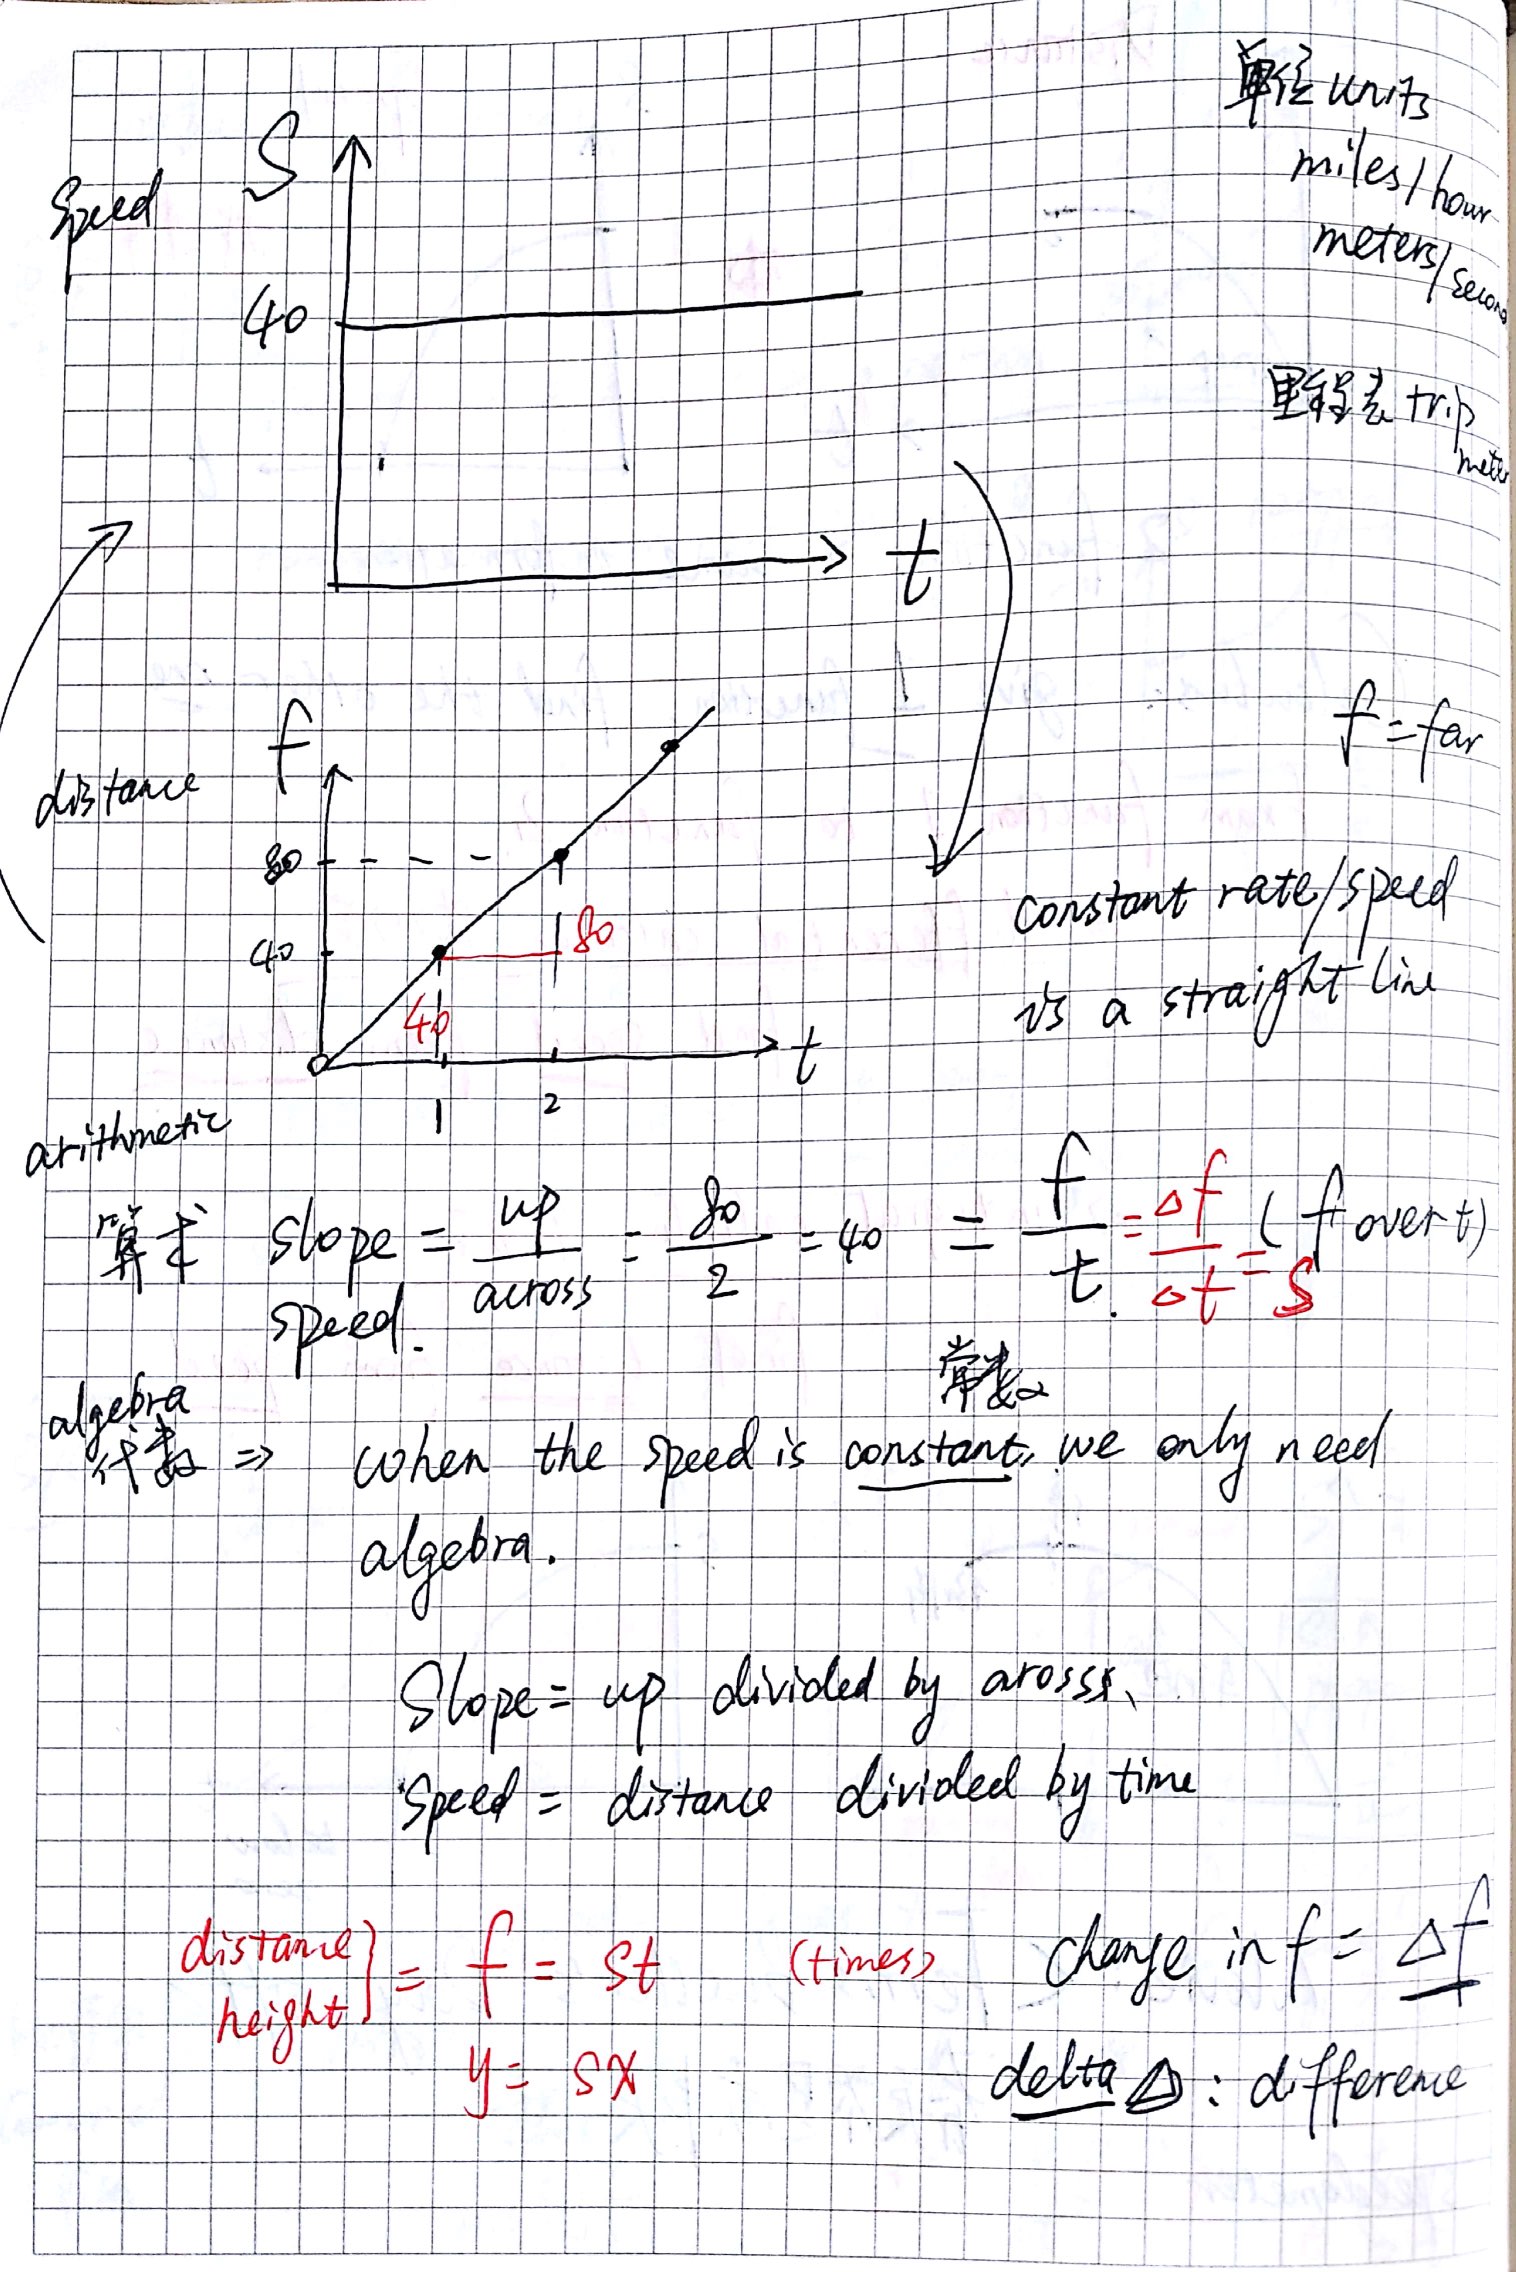 单位 units
miles/hour
meters/second
S
speed
40
里程表 trip
meter
t
f = far
f
distance
80
40
80
40
constant rate/speed
is a straight line
t
1 2
arithmetic
算术 slope = up/across = 80/2 = 40 = f/t = Δf/Δt = S (f over t)
speed.
常数
algebra
代数 ⇒ when the speed is constant, we only need
algebra.
Slope = up divided by arosss、
Speed = distance divided by time
distance
height } = f = st (times)
y = sx
change in f = Δf
delta Δ : difference